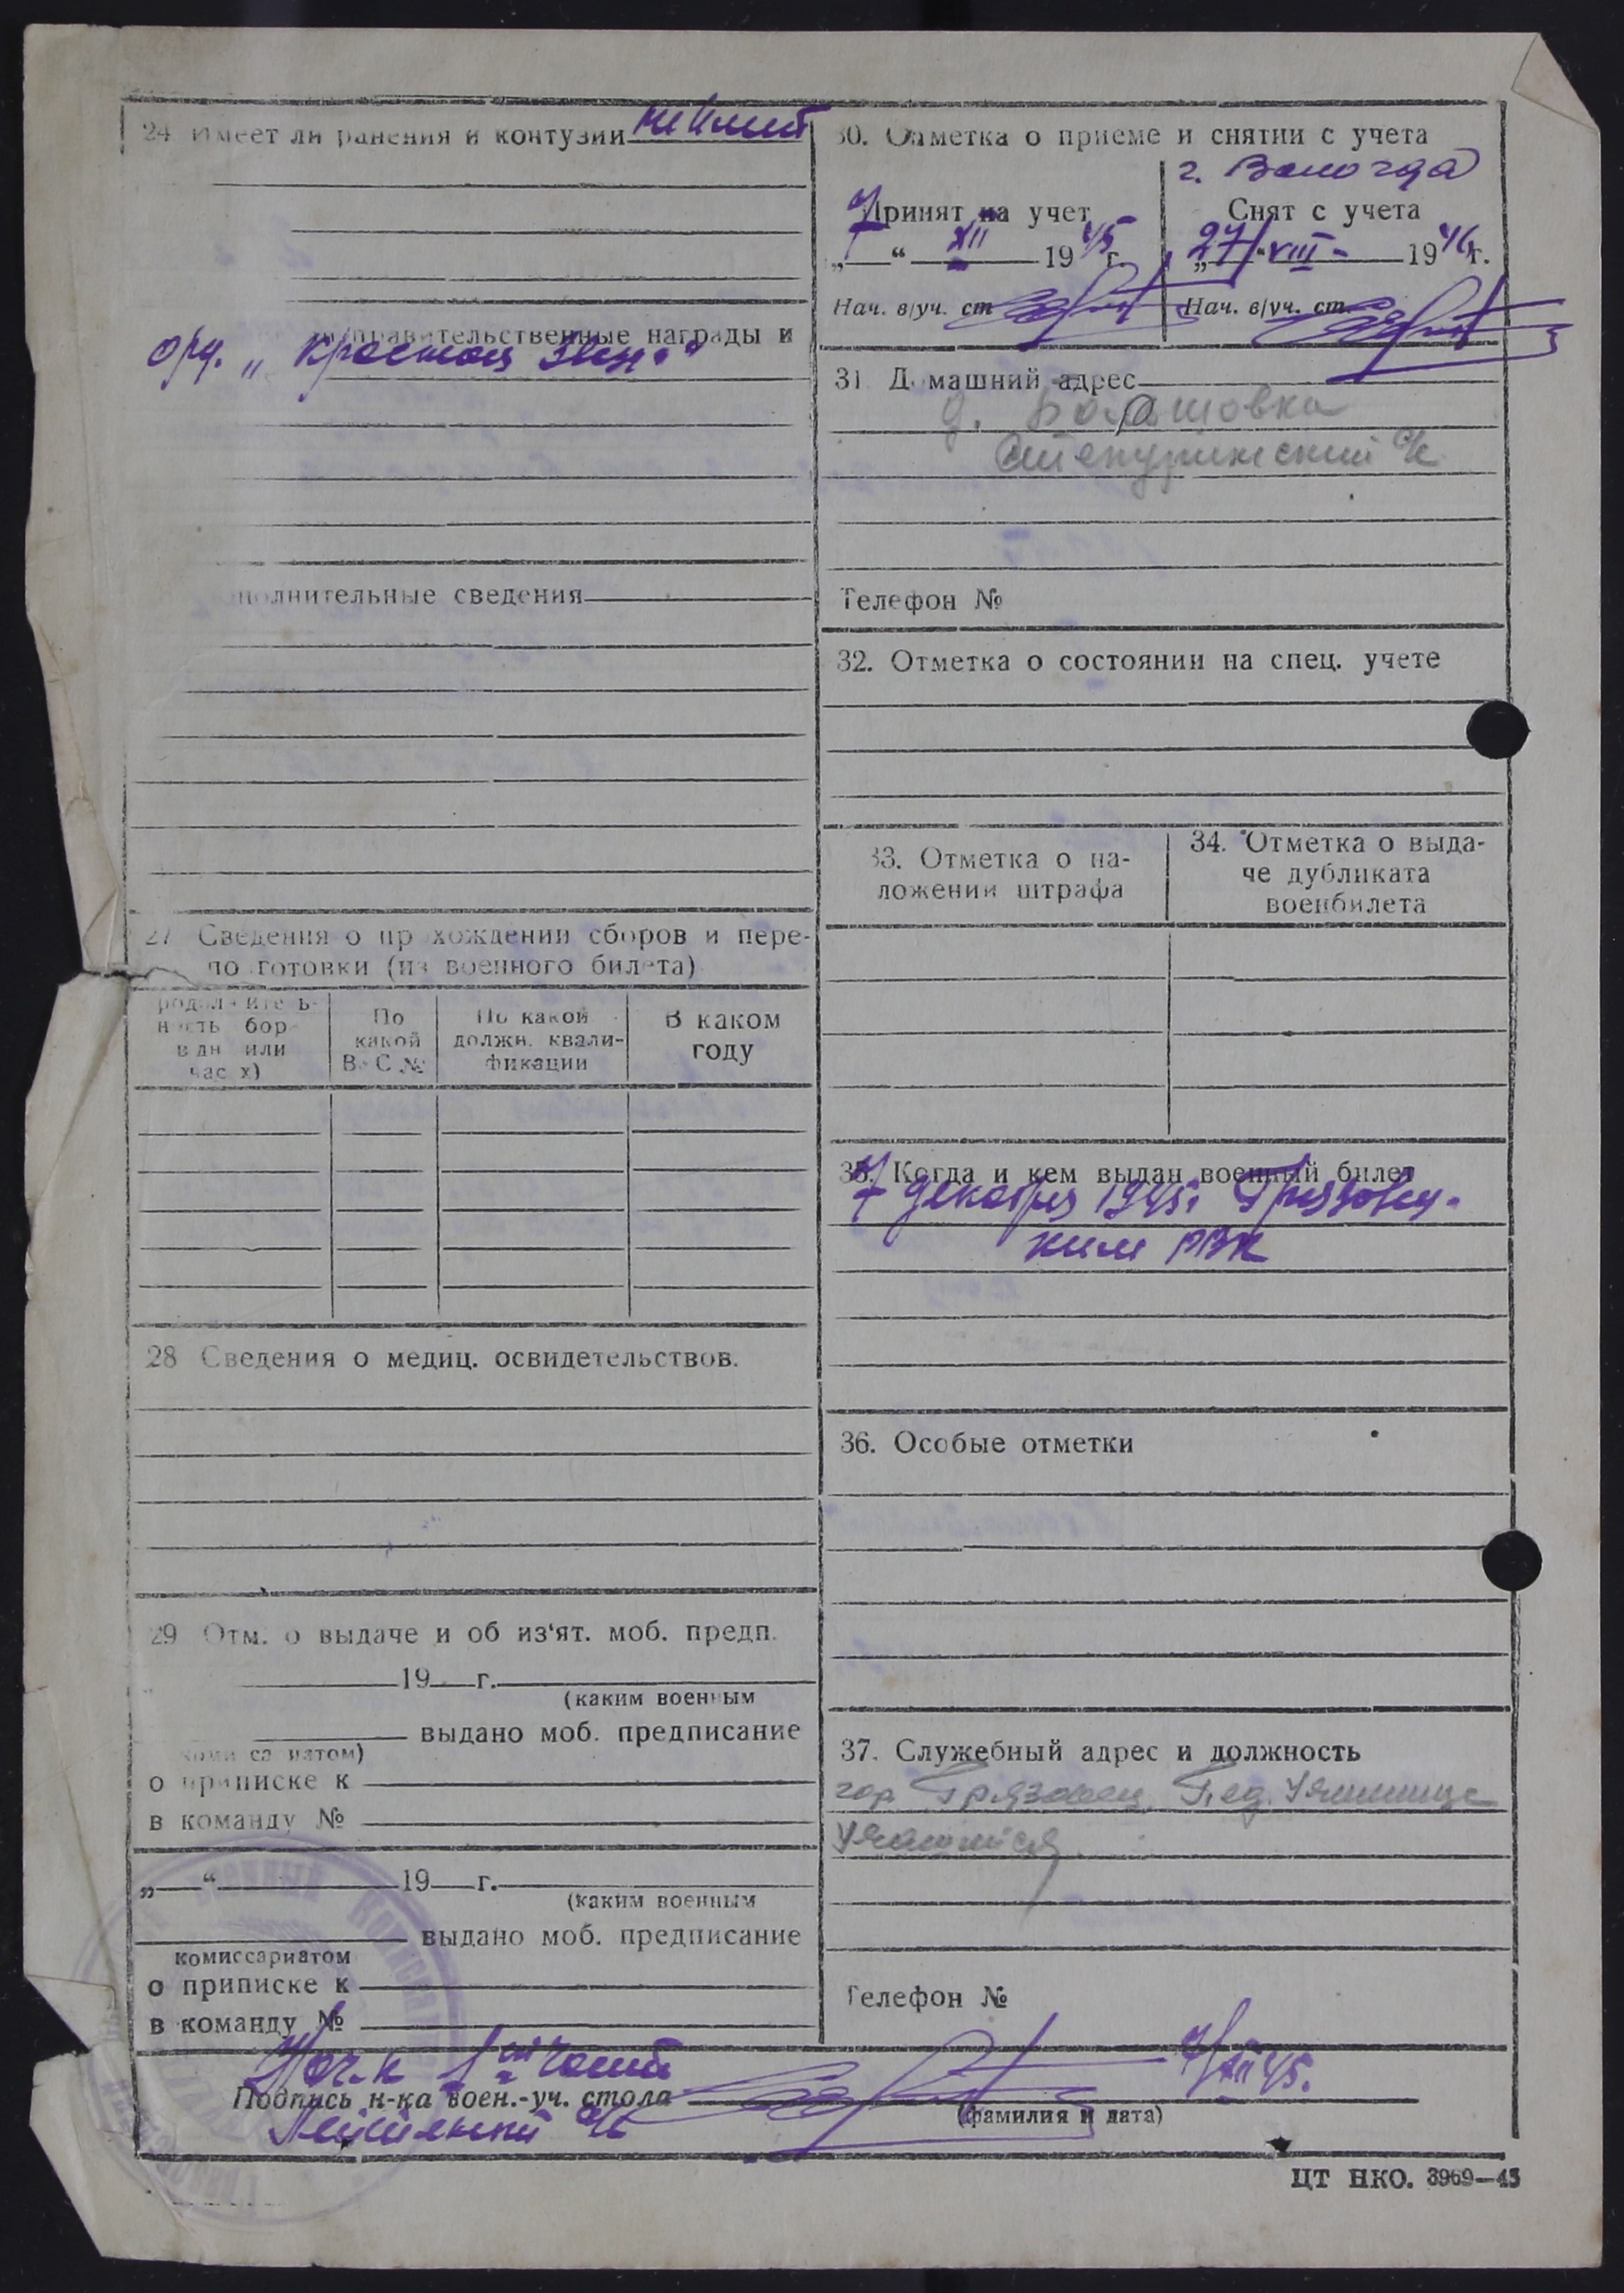 24 Имеет ли ранения и контузии не имеет
правительственные награды и
орд. „Красная Звезда“
полнительные сведения
27 Сведения о прохождении сборов и пере-
подготовки (из военного билета)
родолжитель-
ность сбор
в дн или
час х)
По
какой
ВУС №
По какой
должн. квали-
фикации
В каком
году
28 Сведения о медиц. освидетельствов.
29 Отм. о выдаче и об из‘ят. моб. предп.
19 г.
(каким военным
выдано моб. предписание
комиссариатом)
о приписке к
в команду №
„ “ 19 г.
(каким военным
выдано моб. предписание
комиссариатом
о приписке к
в команду №
30. Отметка о приеме и снятии с учета
г. Вологда
Принят на учет
„7“ XII 1945 г.
Нач. в/уч. ст.
Снят с учета
„27“ VIII 1946 г.
Нач. в/уч. ст.
31 Домашний адрес
д.
с/с
Телефон №
32. Отметка о состоянии на спец. учете
33. Отметка о на-
ложении штрафа
34. Отметка о выда-
че дубликата
военбилета
35. Когда и кем выдан военный билет
7 декабря 1945 г. Грязовец-
ким РВК
36. Особые отметки
37. Служебный адрес и должность
гор. Грязовец, Пед. Училище
Учащийся
Телефон №
Нач-к 1 части
Подпись н-ка воен.-уч. стола
7/XII 45.
(фамилия и дата)
ЦТ НКО. 3969—45